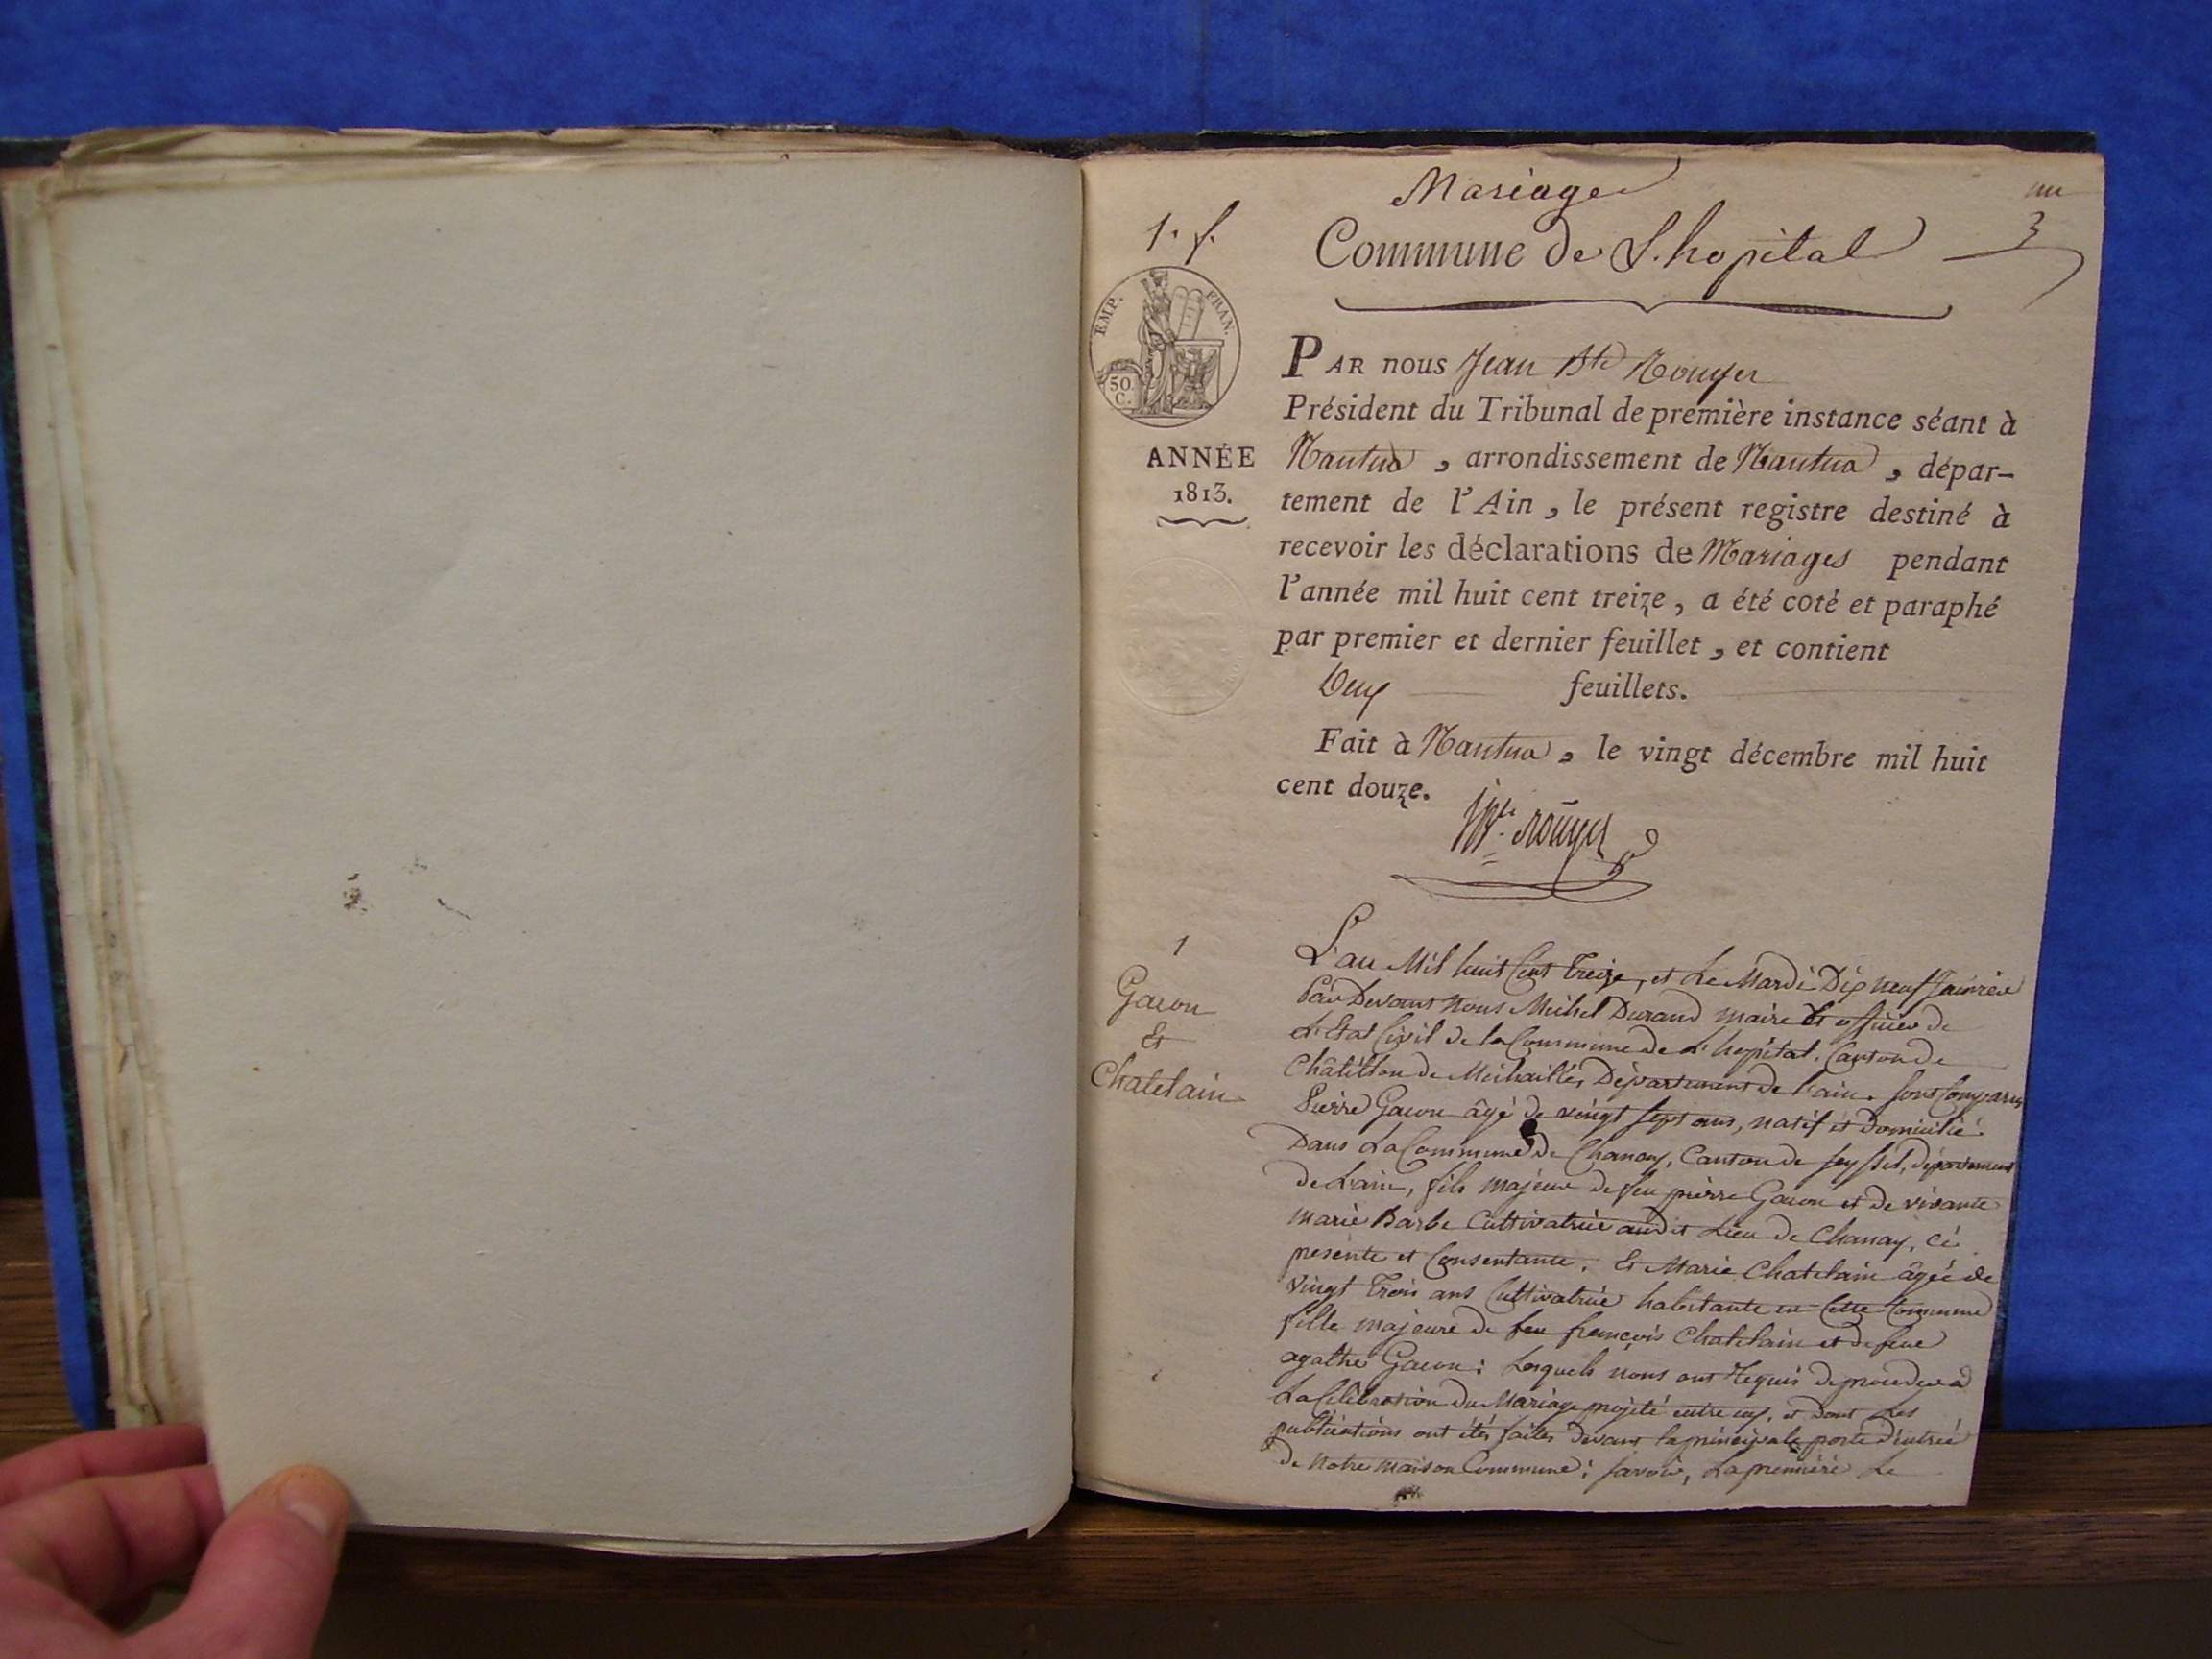 Mariage
1. f.
Commune de L'hopital
EMP. FRAN.
50
C.
ANNÉE
1813.
PAR nous Jean Bte Rouyer
Président du Tribunal de première instance séant à
Nantua, arrondissement de Nantua, dépar-
tement de l'Ain, le présent registre destiné à
recevoir les déclarations de Mariages pendant
l'année mil huit cent treize, a été coté et paraphé
par premier et dernier feuillet, et contient
Deux feuillets.
Fait à Nantua, le vingt décembre mil huit
cent douze.
JBte Rouyer
1
Gacon
Et
Chatelain
L'an Mil huit Cent Treize, et Le Mardi Dix neuf Janvier
Par Devant Nous Michel Durand maire Et officier de
L'Etat Civil de la Commune de L'hopital, Canton de
Châtillon de Michailles Département de l'ain. sont Comparus
Pierre Gacon âgé de vingt sept ans, natif et domicilié
Dans La Commune de Chanay, Canton de Seyssel, département
de L'ain, fils majeur de feu pierre Gacon et de vivante
marie Barbe Cultivatrice audit Lieu de Chanay, Ci
presente et Consentante. Et Marie Chatelain âgée de
vingt Trois ans Cultivatrice habitante en Cette Commune
fille majeure de feu françois Chatelain et de feue
agathe Gacon: Lesquels nous ont Requis de proceder a
La Célébration du Mariage projeté entre eux, et dont Les
publications ont étés faites devant la principale porte d'entrée
de Notre maison Commune; Savoir, La première Le